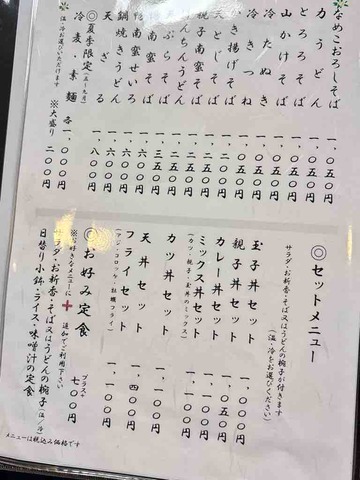 なめこおろしそば
力うどん
とろろそば
山かけそば
冷したぬき
冷しきつね
かき揚げそば
天とじそば
けんちんうどん
親子南蛮そば
天ぷらそば
鴨南蛮せいろ
鍋焼きうどん 一、六〇〇円
天ざる 一、八〇〇円
◎夏季限定(五〜九月)
冷麦・素麺 各一、〇〇〇円
温・冷お選びいただけます
※大盛り 二〇〇円
◎セットメニュー
サラダ・お新香・そば又はうどんの椀子が付きます
(温・冷をお選びください)
玉子丼セット 一、〇〇〇円
親子丼セット 一、〇五〇円
カレー丼セット 一、一〇〇円
ミックス丼セット 一、一〇〇円
(カツ・親子・玉丼のミックス)
カツ丼セット 一、一〇〇円
天丼セット 一、四〇〇円
フライセット 一、一〇〇円
(アジ・コロッケ・牡蠣フライ)
◎お好み定食 プラス+七〇〇円
※お好きなメニューに+追加でご利用下さい
サラダ・お新香・そば又はうどんの椀子(温/冷)
日替り小鉢・ライス・味噌汁の定食
メニューは税込み価格です